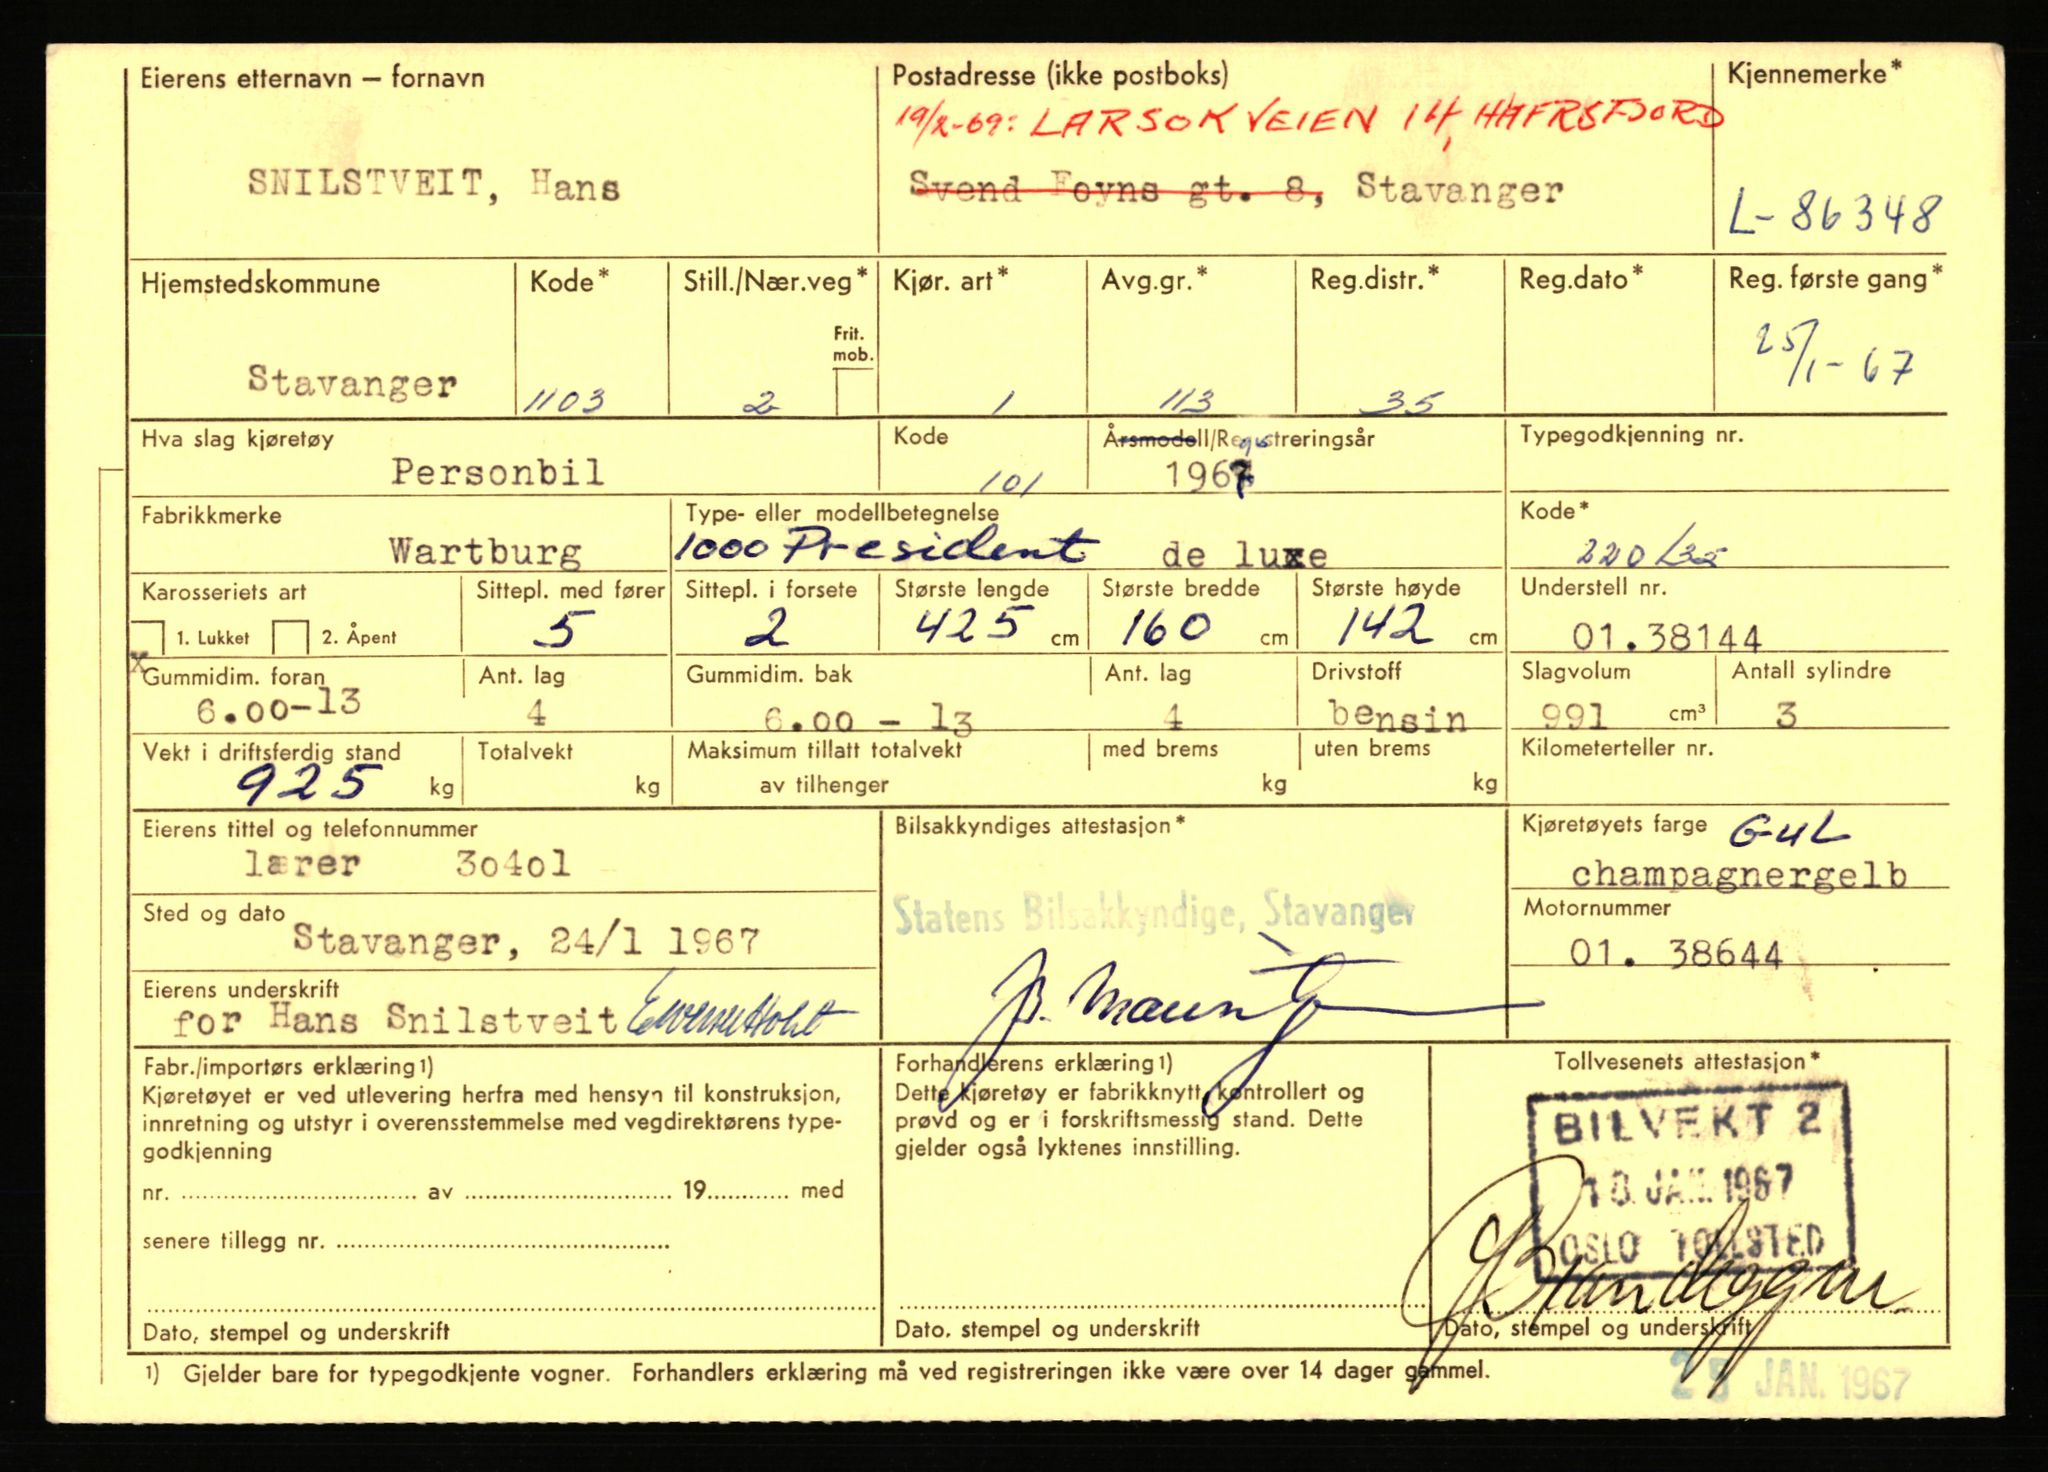 Eierens etternavn – fornavn
SNILSTVEIT, Hans
Postadresse (ikke postboks)
19/X-69: LARSOKVEIEN 14, HAFRSFJORD
Svend Foyns gt. 8, Stavanger
Kjennemerke*
L-86348
Hjemstedskommune
Stavanger
Kode*
1103
Still./Nær.veg*
2
Frit.
mob.
Kjør. art*
1
Avg.gr.*
113
Reg.distr.*
35
Reg.dato*
Reg. første gang*
25/1-67
Hva slag kjøretøy
Personbil
Kode
101
Årsmodell/Registreringsår
1967
Typegodkjenning nr.
Fabrikkmerke
Wartburg
Type- eller modellbetegnelse
1000 President de luxe
Kode*
220
Karosseriets art
1. Lukket 2. Åpent
x
Sittepl. med fører
5
Sittepl. i forsete
2
Største lengde
425 cm
Største bredde
160 cm
Største høyde
142 cm
Understell nr.
01.38144
Gummidim. foran
6.00-13
Ant. lag
4
Gummidim. bak
6.00 - 13
Ant. lag
4
Drivstoff
bensin
Slagvolum
991 cm³
Antall sylindre
3
Vekt i driftsferdig stand
925 kg
Totalvekt
kg
Maksimum tillatt totalvekt
av tilhenger
med brems
kg
uten brems
kg
Kilometerteller nr.
Eierens tittel og telefonnummer
lærer 30401
Bilsakkyndiges attestasjon*
Statens Bilsakkyndige, Stavanger
Kjøretøyets farge GUL
champagnergelb
Sted og dato
Stavanger, 24/1 1967
Motornummer
01. 38644
Eierens underskrift
for Hans Snilstveit
Fabr./importørs erklæring1)
Kjøretøyet er ved utlevering herfra med hensyn til konstruksjon,
innretning og utstyr i overensstemmelse med vegdirektørens type-
godkjenning
nr. .......... av .......... 19.......... med
senere tillegg nr. ..........
Dato, stempel og underskrift
Forhandlerens erklæring1)
Dette kjøretøy er fabrikknytt, kontrollert og
prøvd og er i forskriftsmessig stand. Dette
gjelder også lyktenes innstilling.
Dato, stempel og underskrift
Tollvesenets attestasjon*
BILVEKT 2
18. JAN. 1967
OSLO TOLLSTED
Dato, stempel og underskrift
1) Gjelder bare for typegodkjente vogner. Forhandlers erklæring må ved registreringen ikke være over 14 dager gammel.
25 JAN. 1967